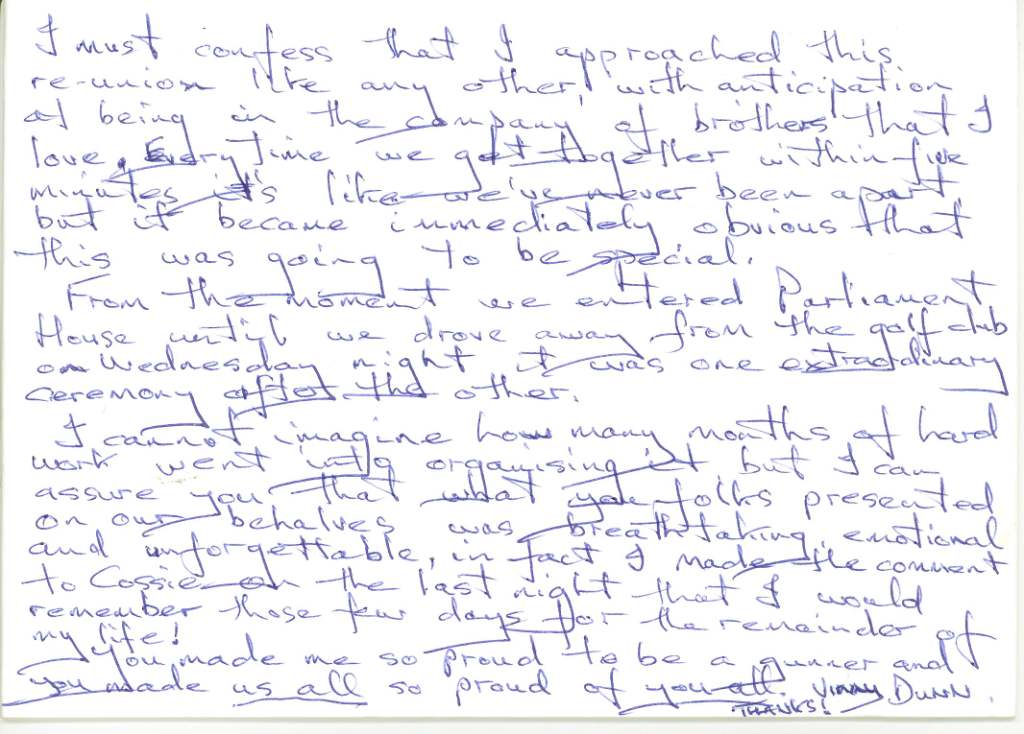 I must confess that I approached this
re-union like any other, with anticipation
of being in the company of brothers that I
love. Every time we get together within five
minutes it's like we've never been apart,
but it became immediately obvious that
this was going to be special.
From the moment we entered Parliament
House until we drove away from the golf club
on Wednesday night it was one extraordinary
ceremony after the other.
I cannot imagine how many months of hard
work went into organising it but I can
assure you that what you folks presented
on our behalves was breathtaking, emotional
and unforgettable, in fact I made the comment
to Cossie on the last night that I would
remember those few days for the remainder of
my life!
You made me so proud to be a gunner and
you made us all so proud of you all. Vinny Dunn.
THANKS!